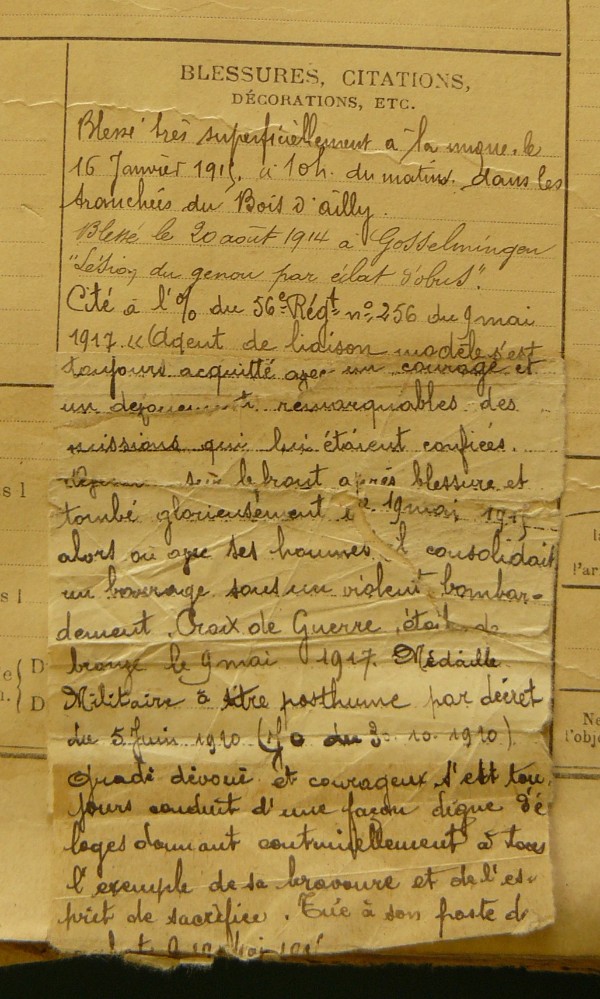 BLESSURES, CITATIONS,
DÉCORATIONS, ETC.
Blessé très superficiellement à la nuque le
16 Janvier 1915, à 10h. du matin dans les
tranchées du Bois d'ailly.
Blessé le 20 août 1914 à Gosselmingen
"Lésion du genou par éclat d'obus".
Cité à l'% du 56e Régt no 256 du 9 mai
1917. "Agent de liaison modèle s'est
toujours acquitté avec un courage et
un remarquables des
missions qui lui étaient confiées.
le front après blessure et
tombé glorieusement 19 mai
alors ou avec ses hommes il consolidait
un barrage sous un violent bombar-
dement. Croix de Guerre étoile de
bronze le 9 mai 1917. Médaille
Militaire à titre posthume par décret
du 5 Juin 1920 (J O du 10. 1920)
Gradé dévoué et courageux, s'est tou
jours conduit d'une façon digne d'é
loges donnant continuellement à tous
l'exemple de sa bravoure et de l'es-
prit de sacrifice. Tué à son poste de
s 1
s 1
D
D
l'ar
Ne
l'obje